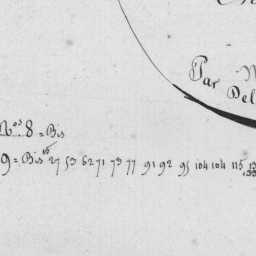 Par
Del
Nos 8 = Bis
9 = Bis 27 53 62 71 73 77 91 92 95 104 104 115